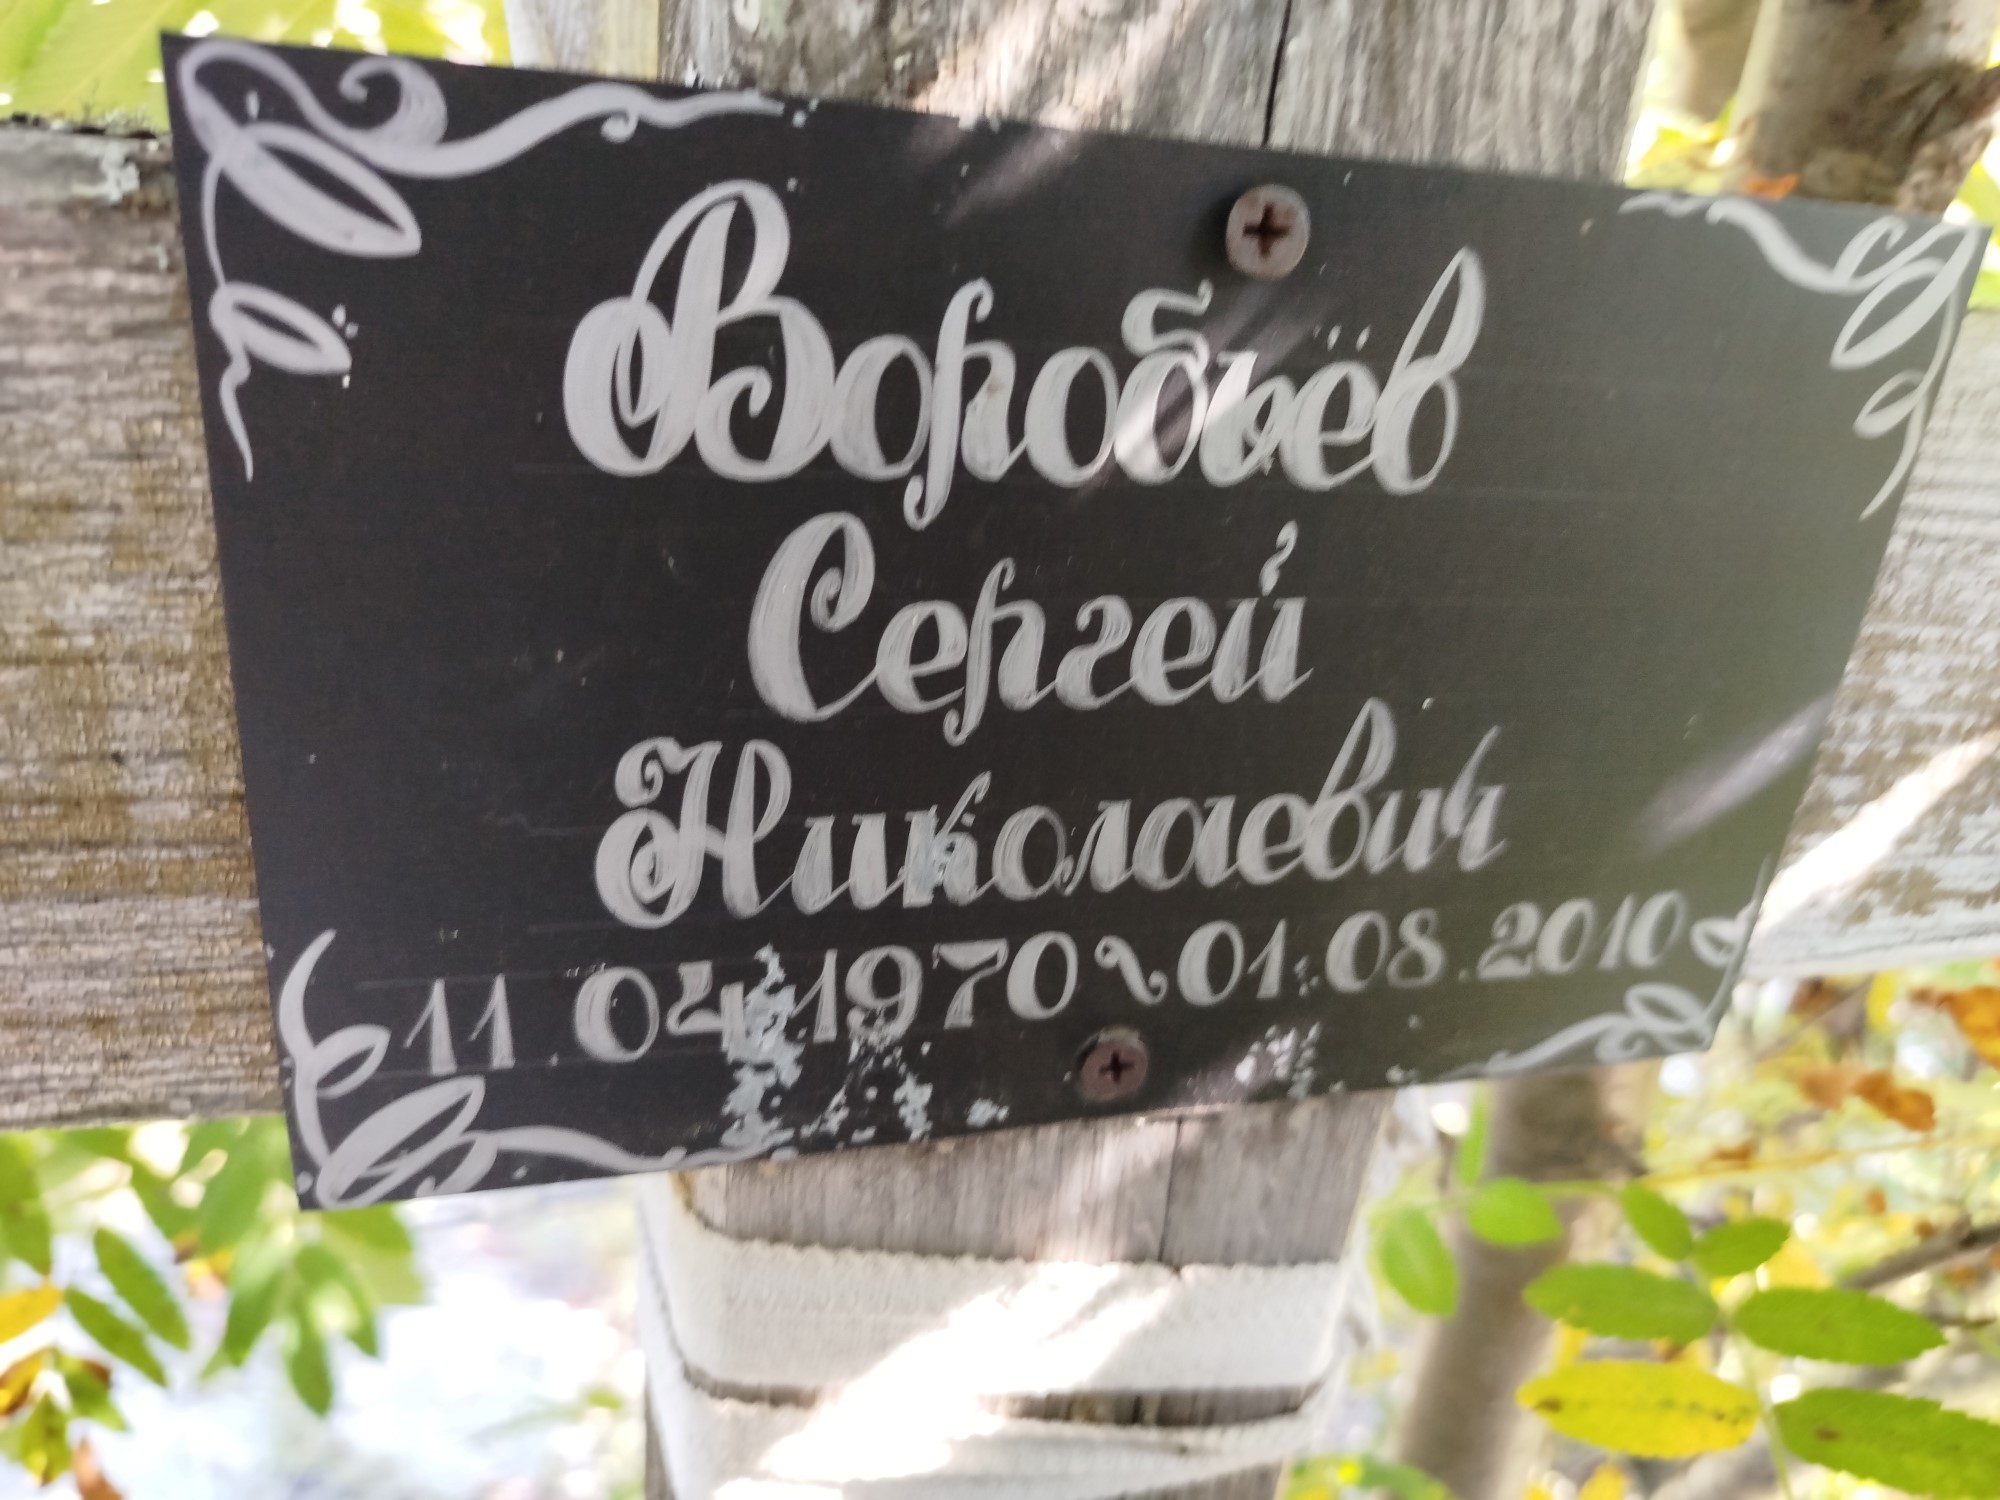 Воробьёв
Сергей
Николаевич
11.04.1970 ~ 01.08.2010